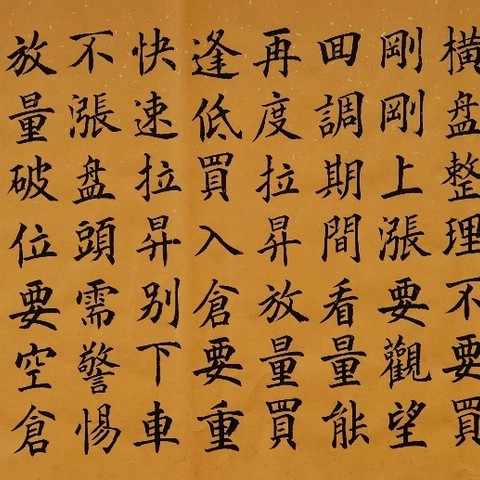 横盘整理不要買
剛剛上漲要觀望
囬調期間看量能
再度拉昇放量買
逢低買入倉要重
快速拉昇别下車
不漲盘頭需警惕
放量破位要空倉